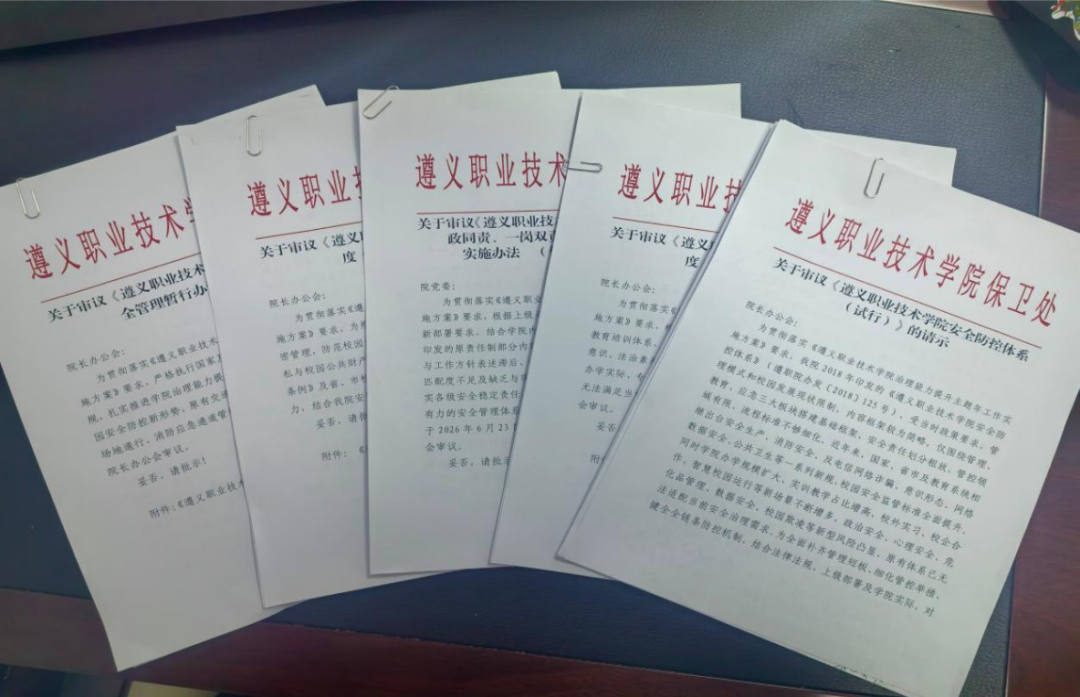 遵义职业技术学
关于审议《遵义职业技术
全管理暂行办
院长办公会:
为贯彻落实《遵义职
施方案》要求,严格执行国家
规,扎实推进学院治理能力提
园安全防控新形势,原有交
场地通行、消防应急通道管
院长办公会审议。
妥否,请批示!
附件:《遵义职业技术
遵义职业技
关于审议《遵义职
度
院长办公会:
为贯彻落实《遵
施方案》要求,为
密管理,防范校园
私与校园公共财产
条例》及省、市
力,结合我院安
妥否,请批
附件:《
遵义职业技术
关于审议《遵义职业技
政同责、一岗双责
实施办法 (
院党委:
为贯彻落实《遵义职业
施方案》要求,根据上级
新部署要求,结合学院内
印发的原责任制部分内
与工作方针表述滞后、
匹配度不足及缺乏与
实各级安全稳定责任
有力的安全管理体系
于2026年6月23
会审议。
妥否,请批示
遵义职业技
关于审议《遵义职
度
院长办公会:
为贯彻落实《
施方案》要求,
教育培训体系、
意识、法治素
办学实际,
无法满足当
会审议。
妥否
附件
遵义职业技术学院保卫处
关于审议《遵义职业技术学院安全防控体系
(试行)》的请示
院长办公会:
为贯彻落实《遵义职业技术学院治理能力提升主题年工作实
施方案》要求,我院2018年印发的《遵义职业技术学院安全防
控体系》(遵职院办发〔2018〕125号),受当时政策要求、管
理模式和校园发展现状限制,内容框架较为简略,仅围绕管理、
教育、应急三大板块搭建基础框架,安全责任划分粗放、管控领
域有限、流程标准不够细化。近年来,国家、省市及教育系统相
继出台安全生产、消防安全、反电信网络诈骗、意识形态、网络
数据安全、公共卫生等一系列新规,校园安全监管标准全面提升,
同时学院办学规模扩大、实训教学占比增高,校外实习、校企合
作、智慧校园运行等新场景不断增多,政治安全、心理安全、危
化品管理、数据安全、校园欺凌等新型风险凸显,原有体系已无
法适配当前安全治理需求。为全面补齐管理短板、细化管控举措、
健全全链条防控机制,结合法律法规、上级部署及学院实际,对